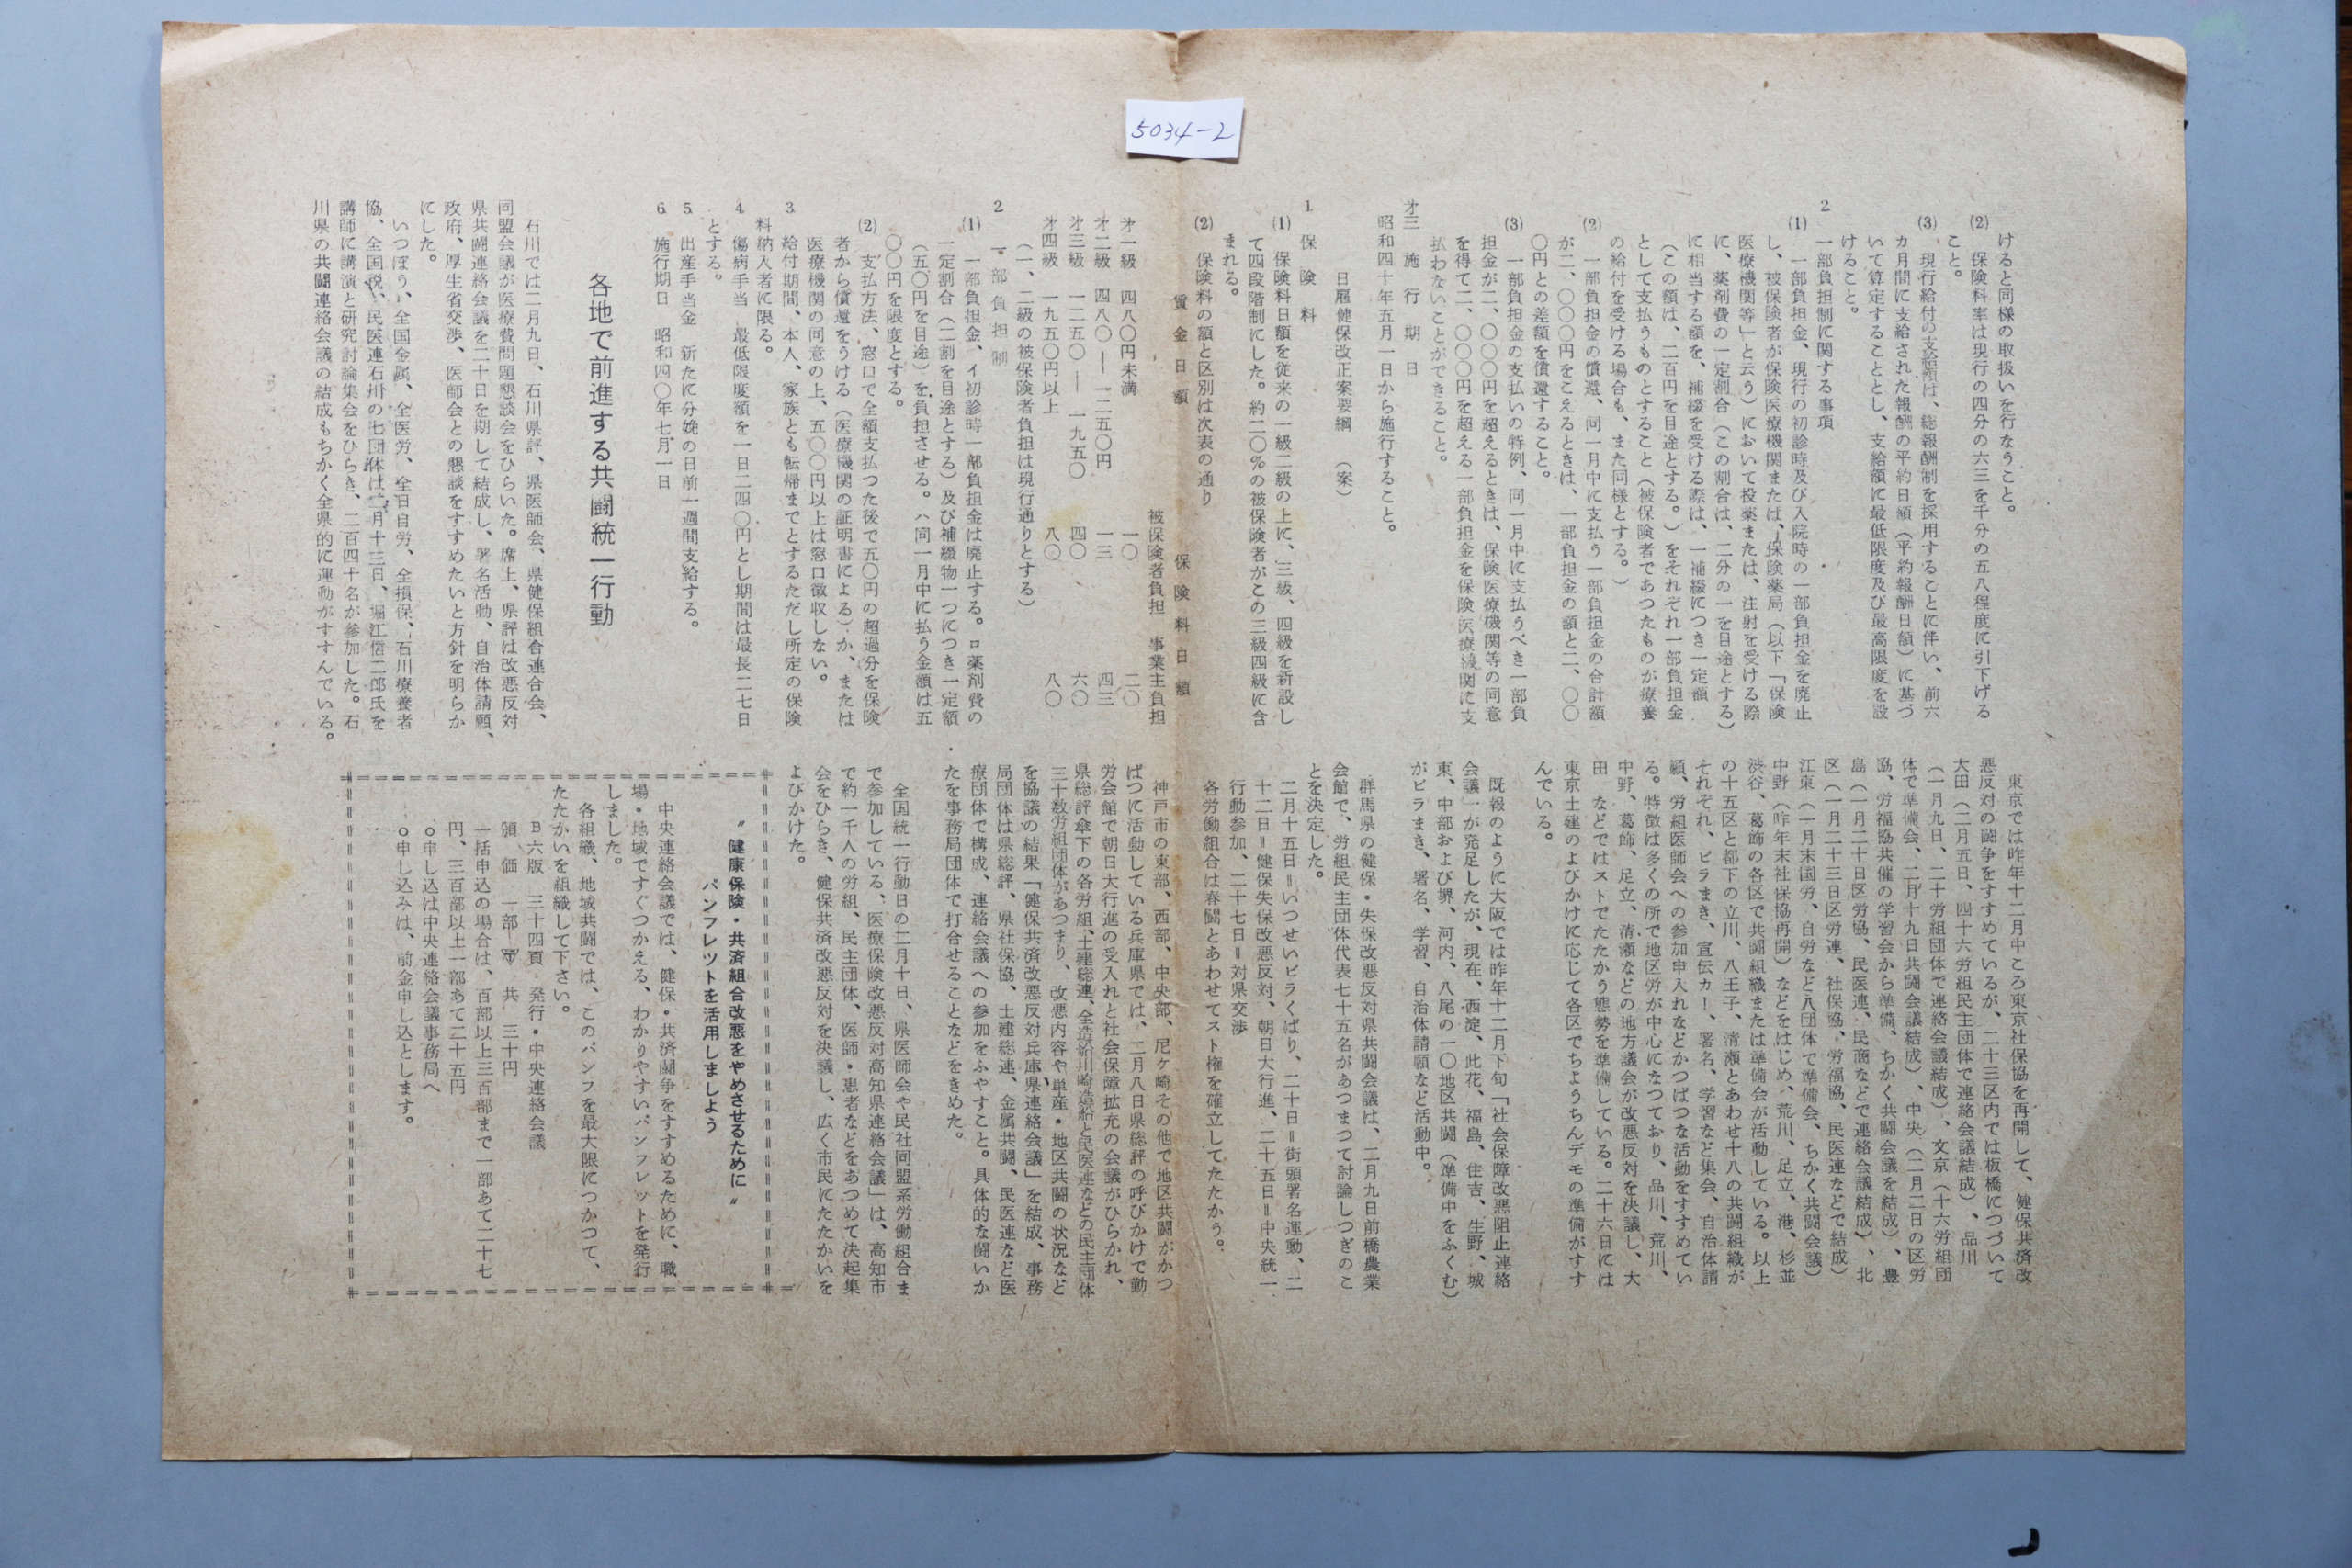 5034-2
けると同様の取扱いを行なうこと。
(2) 保険料率は現行の四分の六三を千分の五八程度に引下げる
こと。
(3) 現行給付の支給額は、総報酬制を採用することに伴い、前六
カ月間に支給された報酬の平約日額(平約報酬日額)に基づ
いて算定することとし、支給額に最低限度及び最高限度を設
けること。
2 一部負担制に関する事項
(1) 一部負担金、現行の初診時及び入院時の一部負担金を廃止
し、被保険者が保険医療機関または、保険薬局(以下「保険
医療機関等」と云う)において投薬または、注射を受ける際
に、薬剤費の一定割合(この割合は、二分の一を目途とする)
に相当する額を、補綴を受ける際は、一補綴につき一定額
(この額は、二百円を目途とする。)をそれぞれ一部負担金
として支払うものとすること(被保険者であつたものが療養
の給付を受ける場合も、また同様とする。)
(2) 一部負担金の償還、同一月中に支払う一部負担金の合計額
が二、〇〇〇円をこえるときは、一部負担金の額と二、〇〇
〇円との差額を償還すること。
(3) 一部負担金の支払いの特例、同一月中に支払うべき一部負
担金が二、〇〇〇円を超えるときは、保険医療機関等の同意
を得て二、〇〇〇円を超える一部負担金を保険医療機関に支
払わないことができること。
オ三 施行期日
昭和四十年五月一日から施行すること。
日雇健保改正案要綱 (案)
1. 保険料
(1) 保険料日額を従来の一級二級の上に、三級、四級を新設し
て四段階制にした。約二〇%の被保険者がこの三級四級に含
まれる。
(2) 保険料の額と区別は次表の通り
賃金日額 保険料日額
被保険者負担 事業主負担
オ一級 四八〇円未満 一〇 二〇
オ二級 四八〇―一二五〇円 一三 四三
オ三級 一二五〇―一九五〇 四〇 六〇
オ四級 一九五〇円以上 八〇 八〇
(一、二級の被保険者負担は現行通りとする)
2 一部負担制
(1) 一部負担金、イ初診時一部負担金は廃止する。ロ薬剤費の
一定割合(二割を目途とする)及び補綴物一つにつき一定額
(五〇円を目途)を負担させる。ハ同一月中に払う金額は五
〇〇円を限度とする。
(2) 支払方法、窓口で全額支払つた後で五〇円の超過分を保険
者から償還をうける(医療機関の証明書による)か、または
医療機関の同意の上、五〇〇円以上は窓口徴収しない。
3. 給付期間、本人、家族とも転帰までとするただし所定の保険
料納入者に限る。
4. 傷病手当 最低限度額を一日二四〇円とし期間は最長二七日
とする。
5. 出産手当金 新たに分娩の日前一週間支給する。
6. 施行期日 昭和四〇年七月一日
各地で前進する共闘統一行動
石川では二月九日、石川県評、県医師会、県健保組合連合会、
同盟会議が医療費問題懇談会をひらいた。席上、県評は改悪反対
県共闘連絡会議を二十日を期して結成し、署名活動、自治体請願、
政府、厚生省交渉、医師会との懇談をすすめたいと方針を明らか
にした。
いつぽう、全国金属、全医労、全日自労、全損保、石川療養者
協、全国税、民医連石川の七団体は二月十三日、堀江信二郎氏を
講師に講演と研究討論集会をひらき、二百四十名が参加した。石
川県の共闘連絡会議の結成もちかく全県的に運動がすすんでいる。
東京では昨年十二月中ころ東京社保協を再開して、健保共済改
悪反対の闘争をすすめているが、二十三区内では板橋につづいて
大田(二月五日、四十六労組民主団体で連絡会議結成)、品川
(一月九日、二十労組団体で連絡会議結成)、文京(十六労組団
体で準備会、二月十九日共闘会議結成)、中央(二月二日の区労
協、労福協共催の学習会から準備、ちかく共闘会議を結成)、豊
島(一月二十日区労協、民医連、民商などで連絡会議結成)、北
区(一月二十三日区労連、社保協、労福協、民医連などで結成)
江東(一月末国労、自労など八団体で準備会、ちかく共闘会議)
中野(昨年末社保協再開)などをはじめ、荒川、足立、港、杉並
渋谷、葛飾の各区で共闘組織または準備会が活動している。以上
の十五区と都下の立川、八王子、清瀬とあわせ十八の共闘組織が
それぞれ、ビラまき、宣伝カー、署名、学習など集会、自治体請
願、労組医師会への参加申入れなどかつぱつな活動をすすめてい
る。特徴は多くの所で地区労が中心になつており、品川、荒川、
中野、葛飾、足立、清瀬などの地方議会が改悪反対を決議し、大
田 などではストでたたかう態勢を準備している。二十六日には
東京土建のよびかけに応じて各区でちようちんデモの準備がすす
んでいる。
既報のように大阪では昨年十二月下旬「社会保障改悪阻止連絡
会議」が発足したが、現在、西淀、此花、福島、住吉、生野、城
東、中部および堺、河内、八尾の一〇地区共闘(準備中をふくむ)
がビラまき、署名、学習、自治体請願など活動中。
群馬県の健保・失保改悪反対県共闘会議は、二月九日前橋農業
会館で、労組民主団体代表七十五名があつまつて討論しつぎのこ
とを決定した。
二月十五日=いつせいビラくばり、二十日=街頭署名運動、二
十二日=健保失保改悪反対、朝日大行進、二十五日=中央統一
行動参加、二十七日=対県交渉
各労働組合は春闘とあわせてスト権を確立してたたかう。
神戸市の東部、西部、中央部、尼ケ崎その他で地区共闘がかつ
ぱつに活動している兵庫県では、二月八日県総評の呼びかけで勤
労会館で朝日大行進の受入れと社会保障拡充の会議がひらかれ、
県総評傘下の各労組、土建総連、全造船川崎造船と民医連などの民主団体
三十数労組団体があつまり、改悪内容や単産・地区共闘の状況など
を協議の結果「健保共済改悪反対兵庫県連絡会議」を結成、事務
局団体は県総評、県社保協、土建総連、金属共闘、民医連など医
療団体で構成、連絡会議への参加をふやすこと。具体的な闘いか
たを事務局団体で打合せることなどをきめた。
全国統一行動日の二月十日、県医師会や民社同盟系労働組合ま
で参加している、医療保険改悪反対高知県連絡会議」は、高知市
で約一千人の労組、民主団体、医師・患者などをあつめて決起集
会をひらき、健保共済改悪反対を決議し、広く市民にたたかいを
よびかけた。
〝健康保険・共済組合改悪をやめさせるために〟
パンフレツトを活用しましよう
中央連絡会議では、健保・共済闘争をすすめるために、職
場・地域ですぐつかえる、わかりやすいパンフレツトを発行
しました。
各組織、地域共闘では、このパンフを最大限につかつて、
たたかいを組織して下さい。
B六版 三十四頁 発行・中央連絡会議
頒価 一部 〒共 三十円
一括申込の場合は、百部以上三百部まで一部あて二十七
円、三百部以上一部あて二十五円
○申し込は中央連絡会議事務局へ
○申し込みは、前金申し込とします。